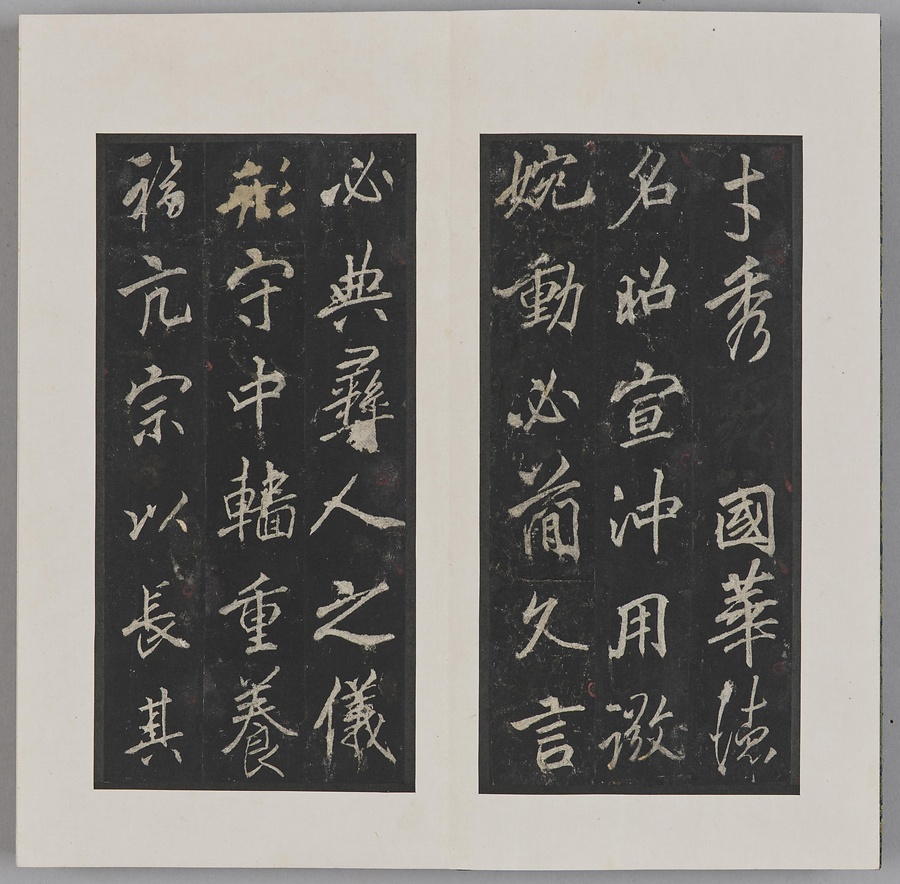 才秀國華德
名昭宣沖用微
婉動必簡久言
必典彝人之儀
形守中轖重養
福亢宗以長其